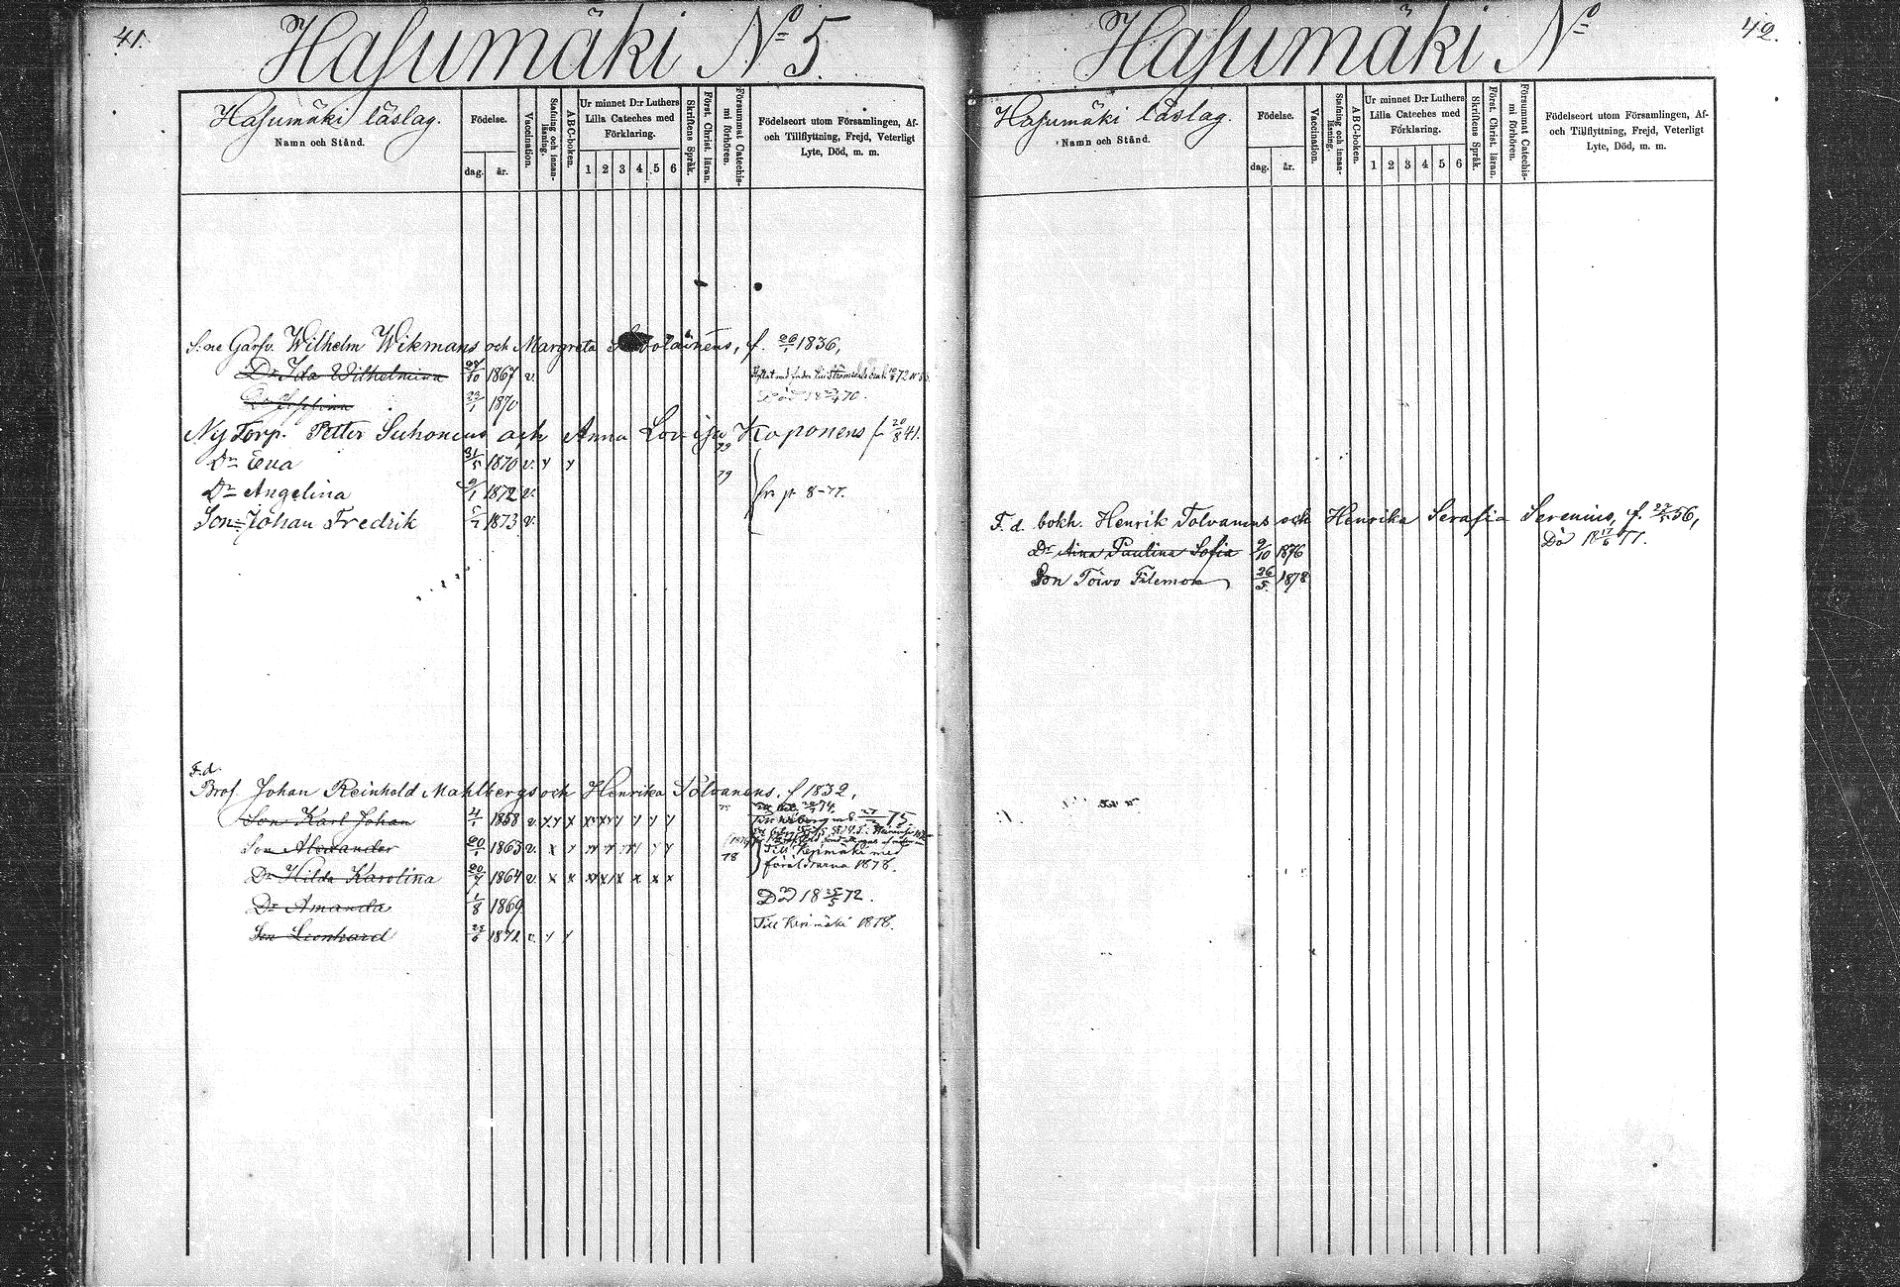 41.
Hasumäki № 5.
Hasumäki läslag.
Namn och Stånd.
Födelse.
dag.
år.
Vaccination.
Stafning och innan-läsning.
ABC-boken.
Ur minnet D:r Luthers
Lilla Cateches med
Förklaring.
1 2 3 4 5 6
Skriftens Språk.
Först. Christ. läran.
Försummat Catechis-mi förhören.
Födelseort utom Församlingen, Af-
och Tillflyttning, Frejd, Veterligt
Lyte, Död, m. m.
Garfv. Wilhelm Wikmans och Margreta f. 26/1 1836,
Dr Ida Wilhelmina 27/10 1867 v.
1870 Död
Ny Torp. Petter Suhonens och Anna Lovisa Koponens f. 20/8 41.
Dr Eva 31/5 1870 v. y y 79
Dr Angelina 9/1 1872 v. 79 p. 8-77.
Son Johan Fredrik 1873 v.
F.d.
Prof. Johan Reinhold Mahlbergs och Henrika Tolvanens, f 1832,
Son Karl Johan 4/1 1858 v. 75
Son Alexander 20/1 1863 v. 78 Till Kerimäki med
föräldrarna 1878.
Dr Hilda Karolina 20/7 1864 v. x x
Dr Amanda 1/8 1869 Död 18 72.
Son Leonhard 1871 v. y y Till Kerimäki 1878.
42.
Hasumäki №
Hasumäki läslag.
Namn och Stånd.
Födelse.
dag.
år.
Vaccination.
Stafning och innan-läsning.
ABC-boken.
Ur minnet D:r Luthers
Lilla Cateches med
Förklaring.
1 2 3 4 5 6
Skriftens Språk.
Först. Christ. läran.
Försummat Catechis-mi förhören.
Födelseort utom Församlingen, Af-
och Tillflyttning, Frejd, Veterligt
Lyte, Död, m. m.
F. d. bokh. Henrik Tolvanens och Henrika Serafia Serenius, f. 56,
Dr Aina Paulina Sofia 9/10 1876 Död 18 17/6 77.
Son Toivo Filemon 26/5. 1878